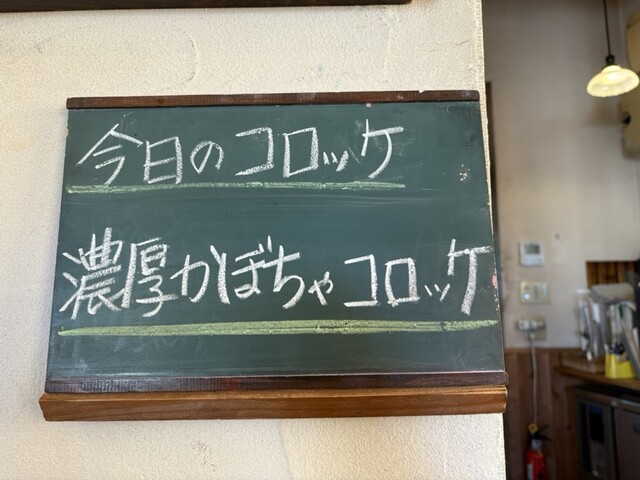 今日のコロッケ
濃厚かぼちゃコロッケ